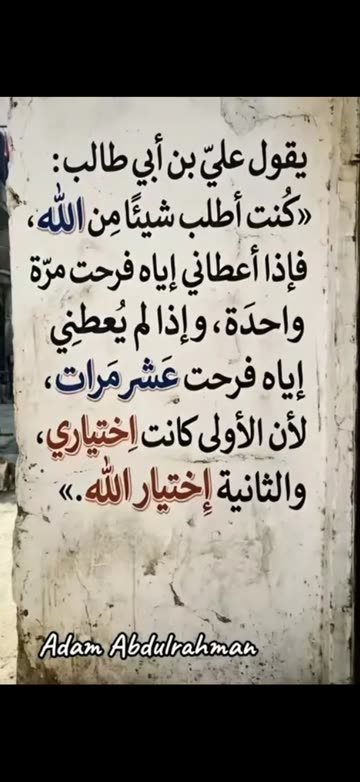 يقول عليّ بن أبي طالب:
«كُنت أطلب شيئًا مِن الله،
فإذا أعطاني إياه فرحت مرّة
واحدَة، وإذا لم يُعطنِي
إياه فرحت عَشر مَرات،
لأن الأولى كانت اِختياري،
والثانية إِختيار الله.»
Adam Abdulrahman